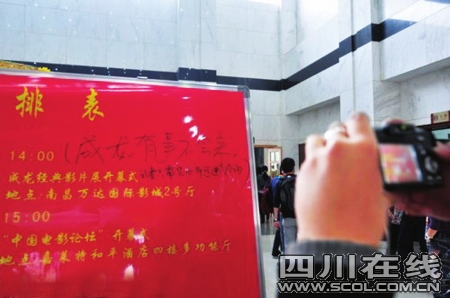 排 表
14:00 (成龙有事不
成龙经典影片展开幕式
地点:南昌万达国际影城2号厅
15:00
“中国电影论坛”开幕式
地点:嘉莱特和平酒店四楼多功能厅
四川在线
WWW.SCOL.COM.CN